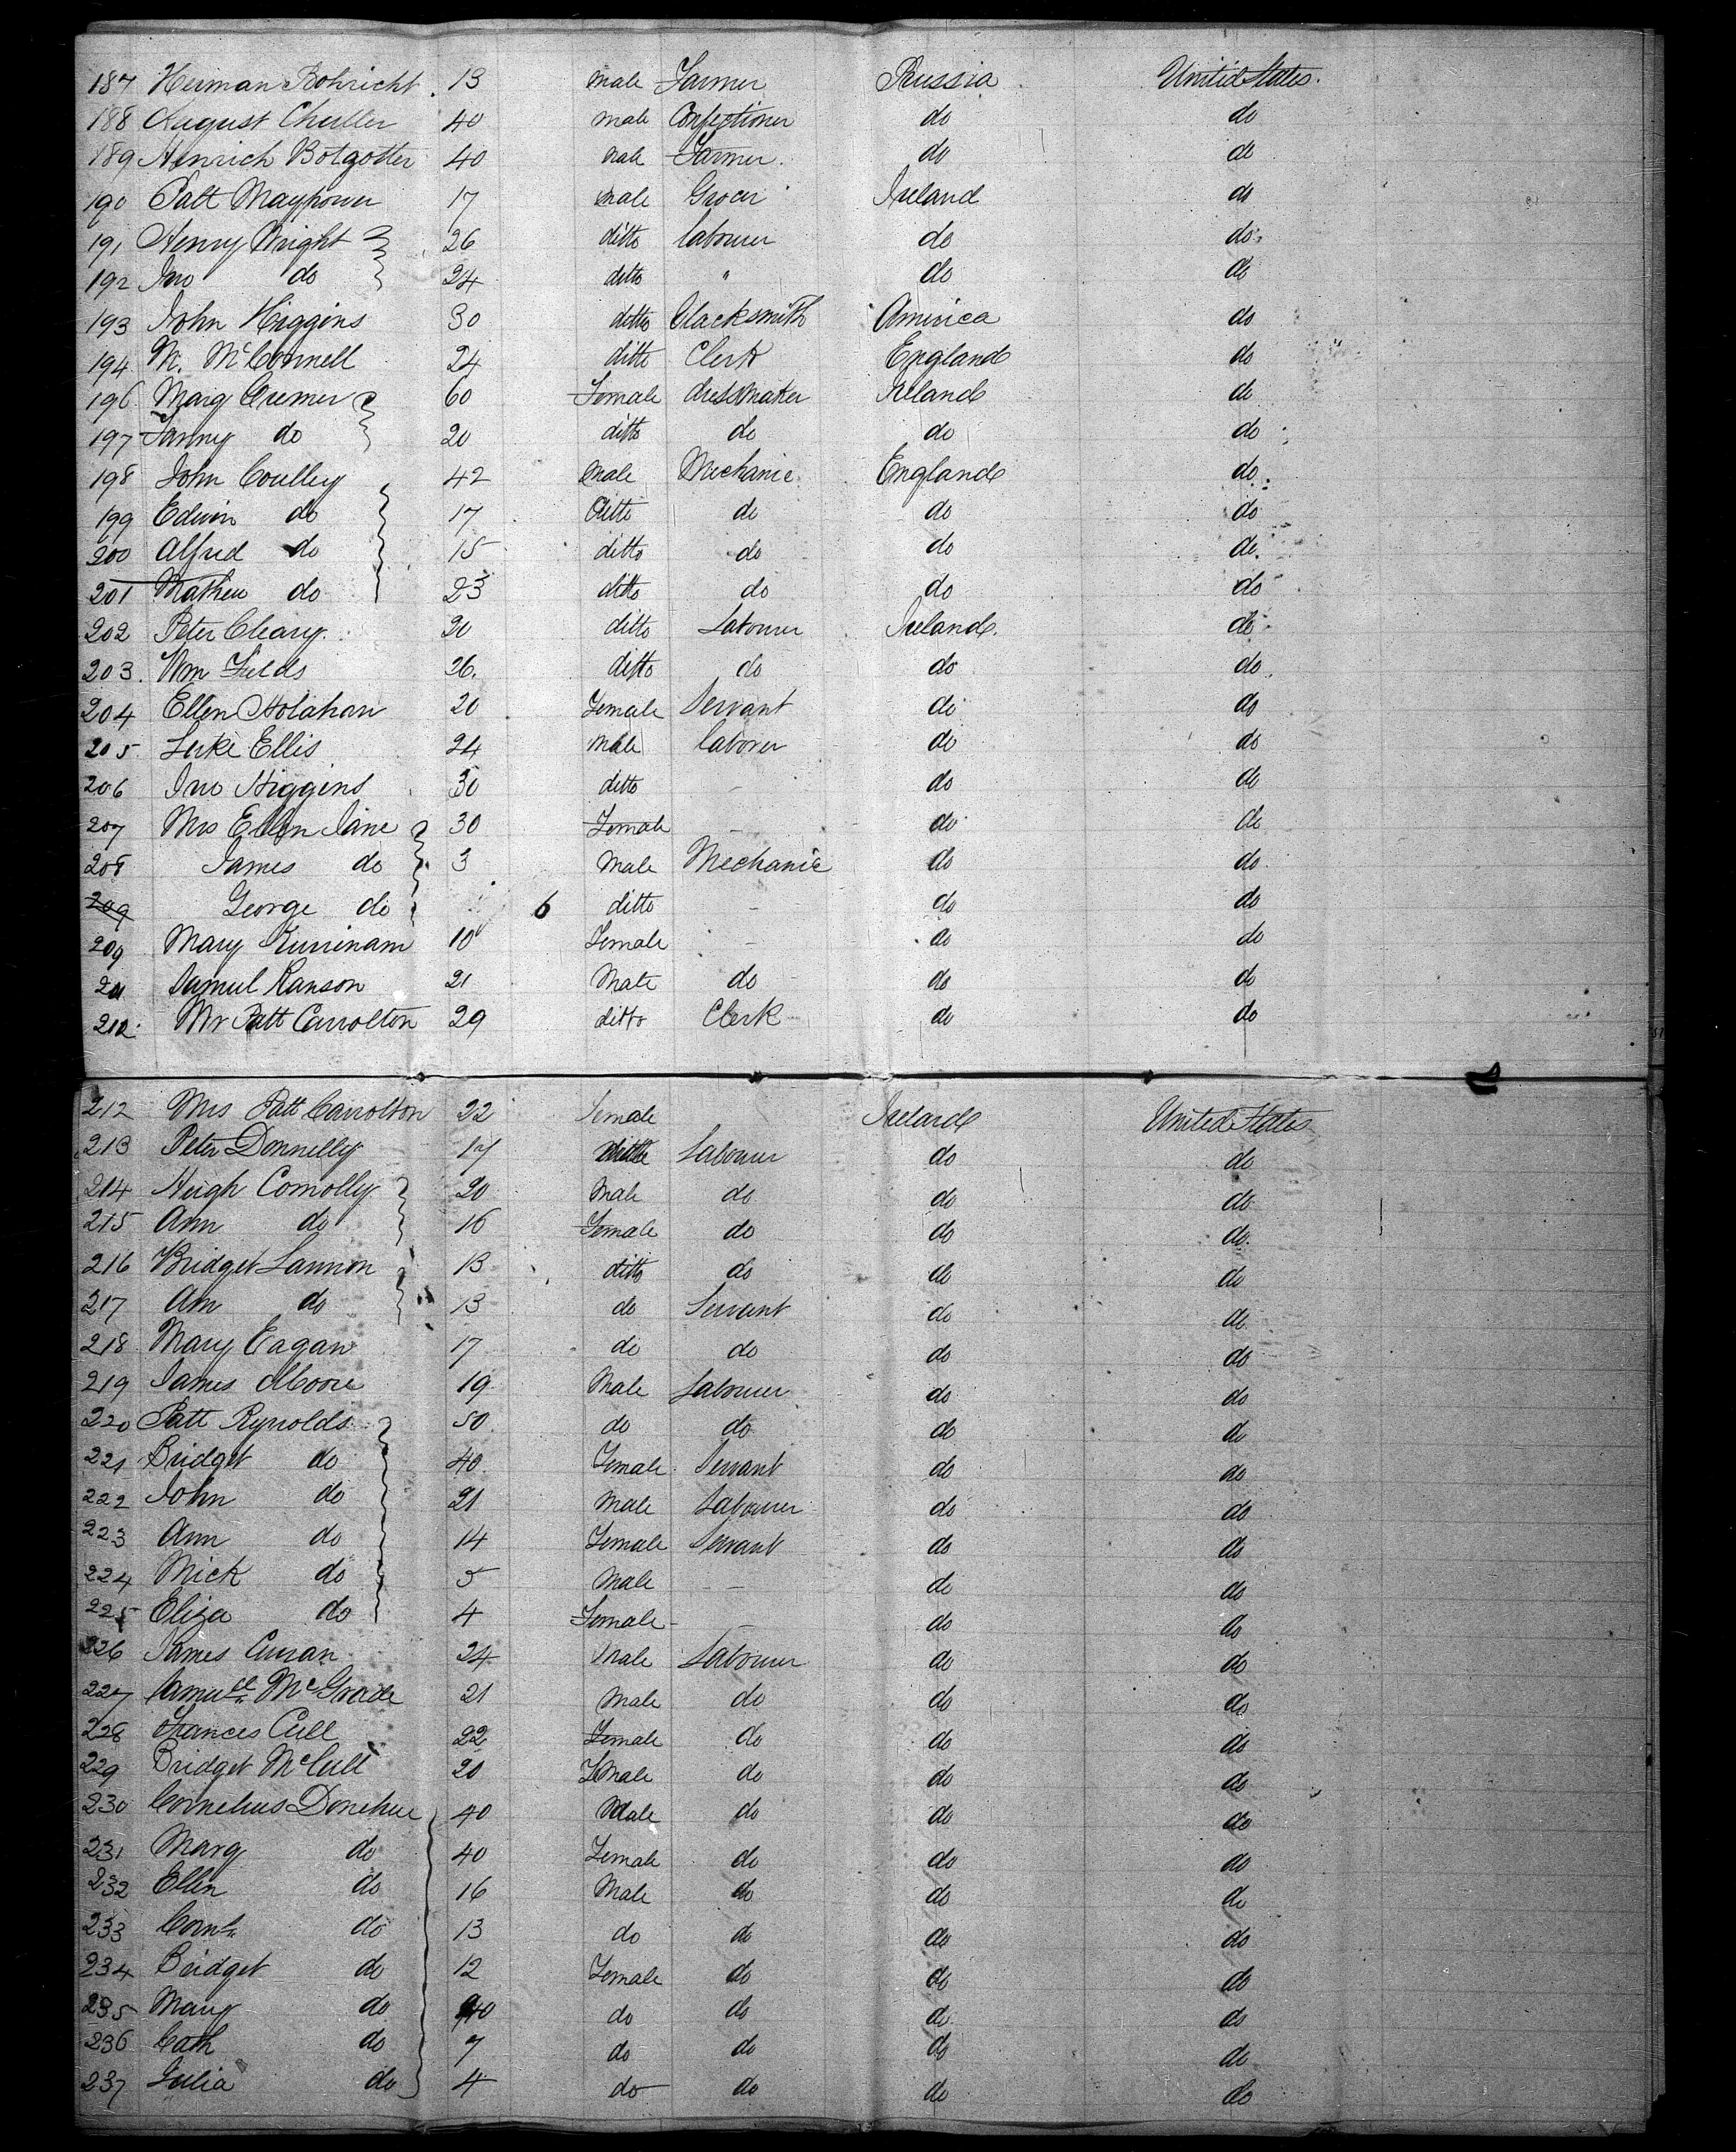 187 Herman Rohricht 13 male Farmer Russia United States.
188 August Chuller 40 male Confectioner do do
189 Henrich Botgotter 40 male Farmer. do do
190 Patt Maypower 17 male Grocer Ireland do
191 Henry Wright 26 ditto labourer do do
192 Jno do 24 ditto " do do
193 John Higgins 30 ditto Blacksmith America do
194 M. McConnell 24 ditto Clerk England do
196 Marg Cremer 60 Female dressmaker Ireland do
197 Fanny do 20 ditto do do do
198 John Coulley 42 male Mechanic England do
199 Edwin do 17 Ditto do do do
200 Alfred do 15 ditto do do do
201 Mathew do 23 ditto do do do
202 Peter Cleary. 20 ditto Labourer Ireland. do
203. Wm Fields 26. ditto do do do
204 Ellen Holahan 20 Female Servant do do
205 Luke Ellis 24 male laborer do do
206 Jno Higgins 30 ditto - do do
207 Mrs Ellen Jane 30 Female - do do
208 James do 3 male Mechanic do do
209 George do 6 ditto - do do
209 Mary 10 Female - do do
211 Samuel Ranson 21 Male do do do
212. Mr Patt Carrolton 29 ditto Clerk do do
212 Mrs Patt Carrolton 22 Female Ireland United States
213 Peter Donnelly 17 Labourer do do
214 Hugh Conolly 20 Male do do do
215 Ann do 16 Female do do do
216 Bridget Lannon 13 ditto do do do
217 Ann do 13 do Servant do do
218 Mary Eagan 17 do do do do
219 James Moore 19 Male Labourer do do
220 Patt Reynolds 50 do do do do
221 Bridget do 40 Female Servant do do
222 John do 21 Male Labourer do do
223 Ann do 14 Female Servant do do
224 Mick do 5 Male - do do
225 Eliza do 4 Female - do do
226 James Curran 24 Male Labourer do do
227 Samuell McGrade 21 Male do do do
228 Frances Cull 22 Female do do do
229 Bridget McCull 20 Female do do do
230 Cornelius Donehue 40 Male do do do
231 Marg do 40 Female do do do
232 Ellen do 16 Male do do do
233 Cornls do 13 do do do do
234 Bridget do 12 Female do do do
235 Mary do do do do do
236 Cath do 7 do do do do
237 Julia do 4 do do do do